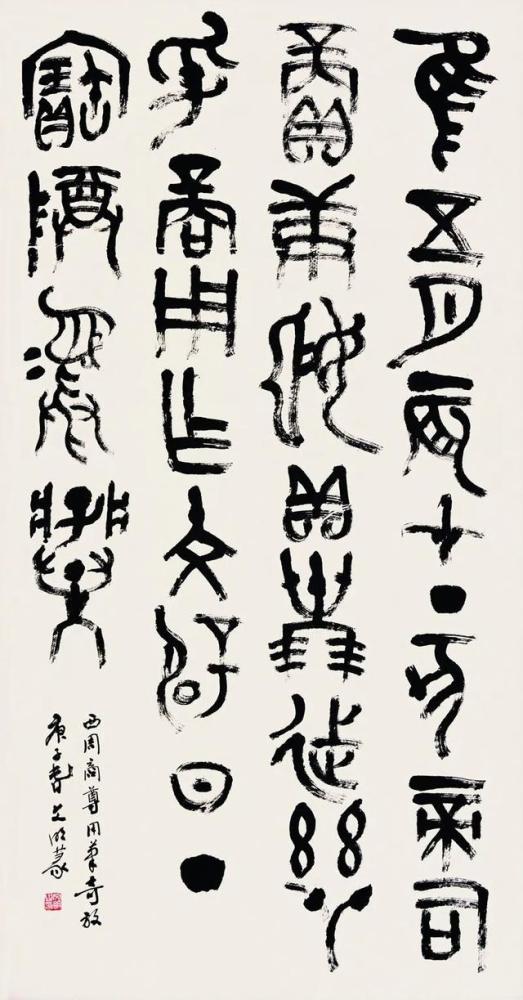 隹五月辰才丁亥帝司
賞庚姬貝卅朋迖絲廿
寽商用乍文辟日丁
寶尊彝
西周商尊用筆奇放
庚子春